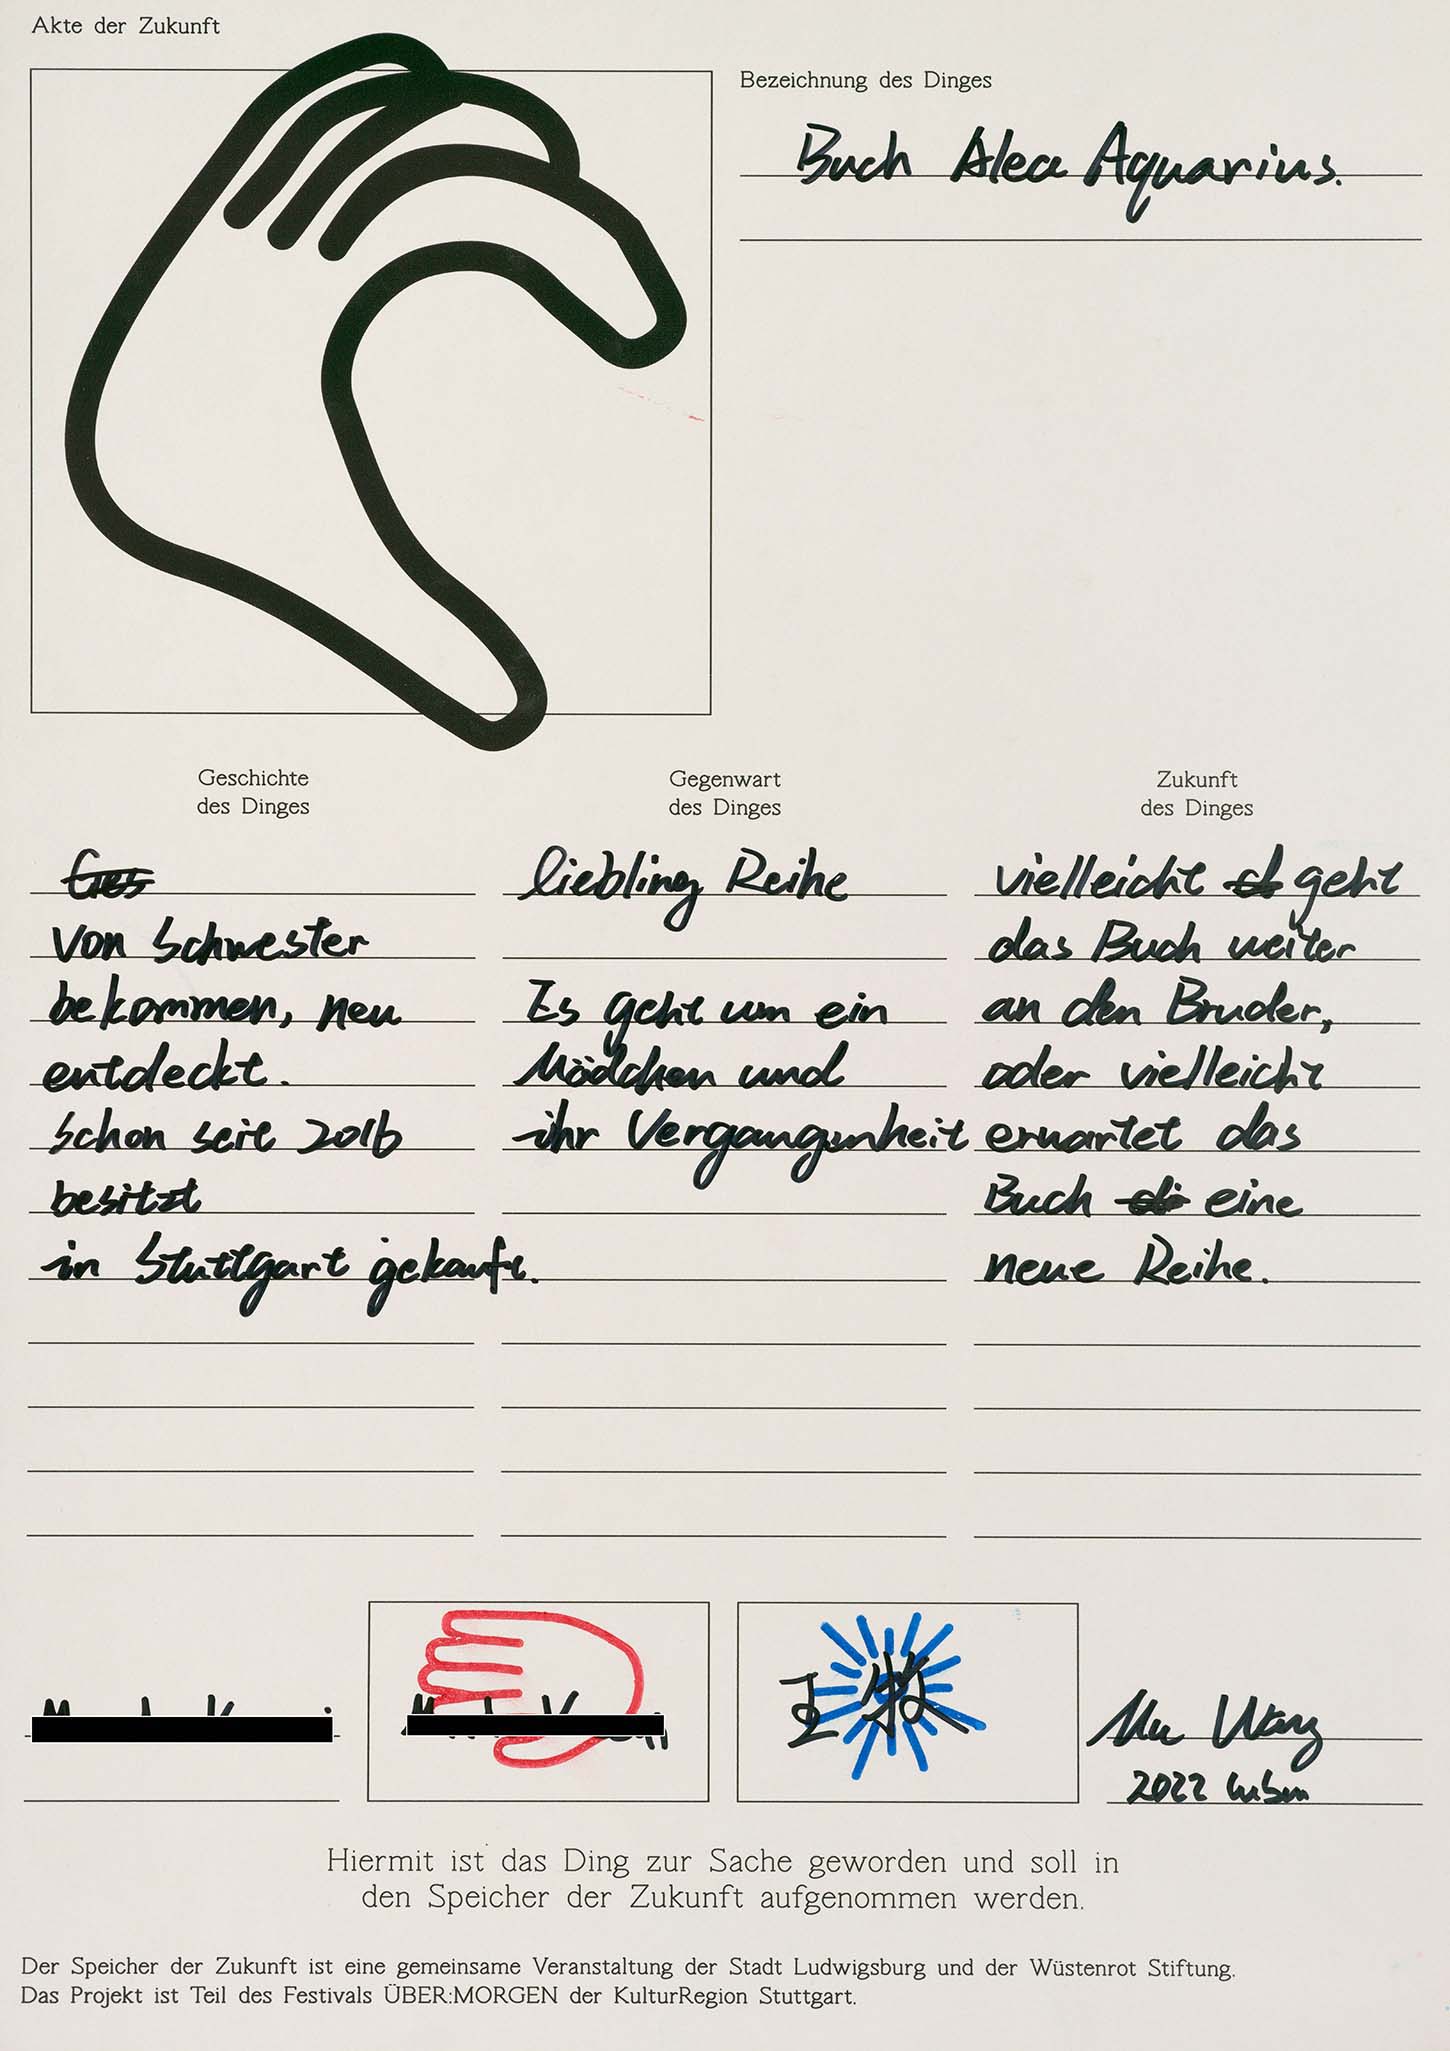 Akte der Zukunft
Bezeichnung des Dinges
Buch Alea Aquarius.
Geschichte
des Dinges
Ges
von Schwester
bekommen, neu
entdeckt.
schon seit 2016
besitzt
in Stuttgart gekauft.
Gegenwart
des Dinges
liebling Reihe
Es geht um ein
Mädchen und
ihr Vergangenheit
Zukunft
des Dinges
vielleicht geht
das Buch weiter
an den Bruder,
oder vielleicht
erwartet das
Buch di eine
neue Reihe.
王牧
Mu Wang
2022
Hiermit ist das Ding zur Sache geworden und soll in
den Speicher der Zukunft aufgenommen werden.
Der Speicher der Zukunft ist eine gemeinsame Veranstaltung der Stadt Ludwigsburg und der Wüstenrot Stiftung.
Das Projekt ist Teil des Festivals ÜBER:MORGEN der KulturRegion Stuttgart.